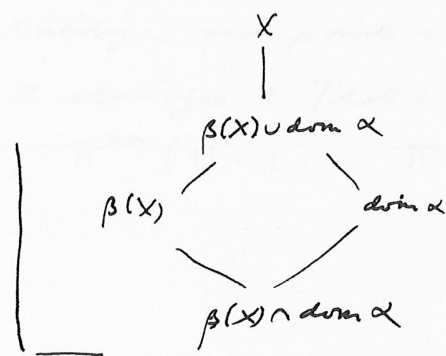 X
β(X) ∪ dom α
β(X) dom α
β(X) ∩ dom α